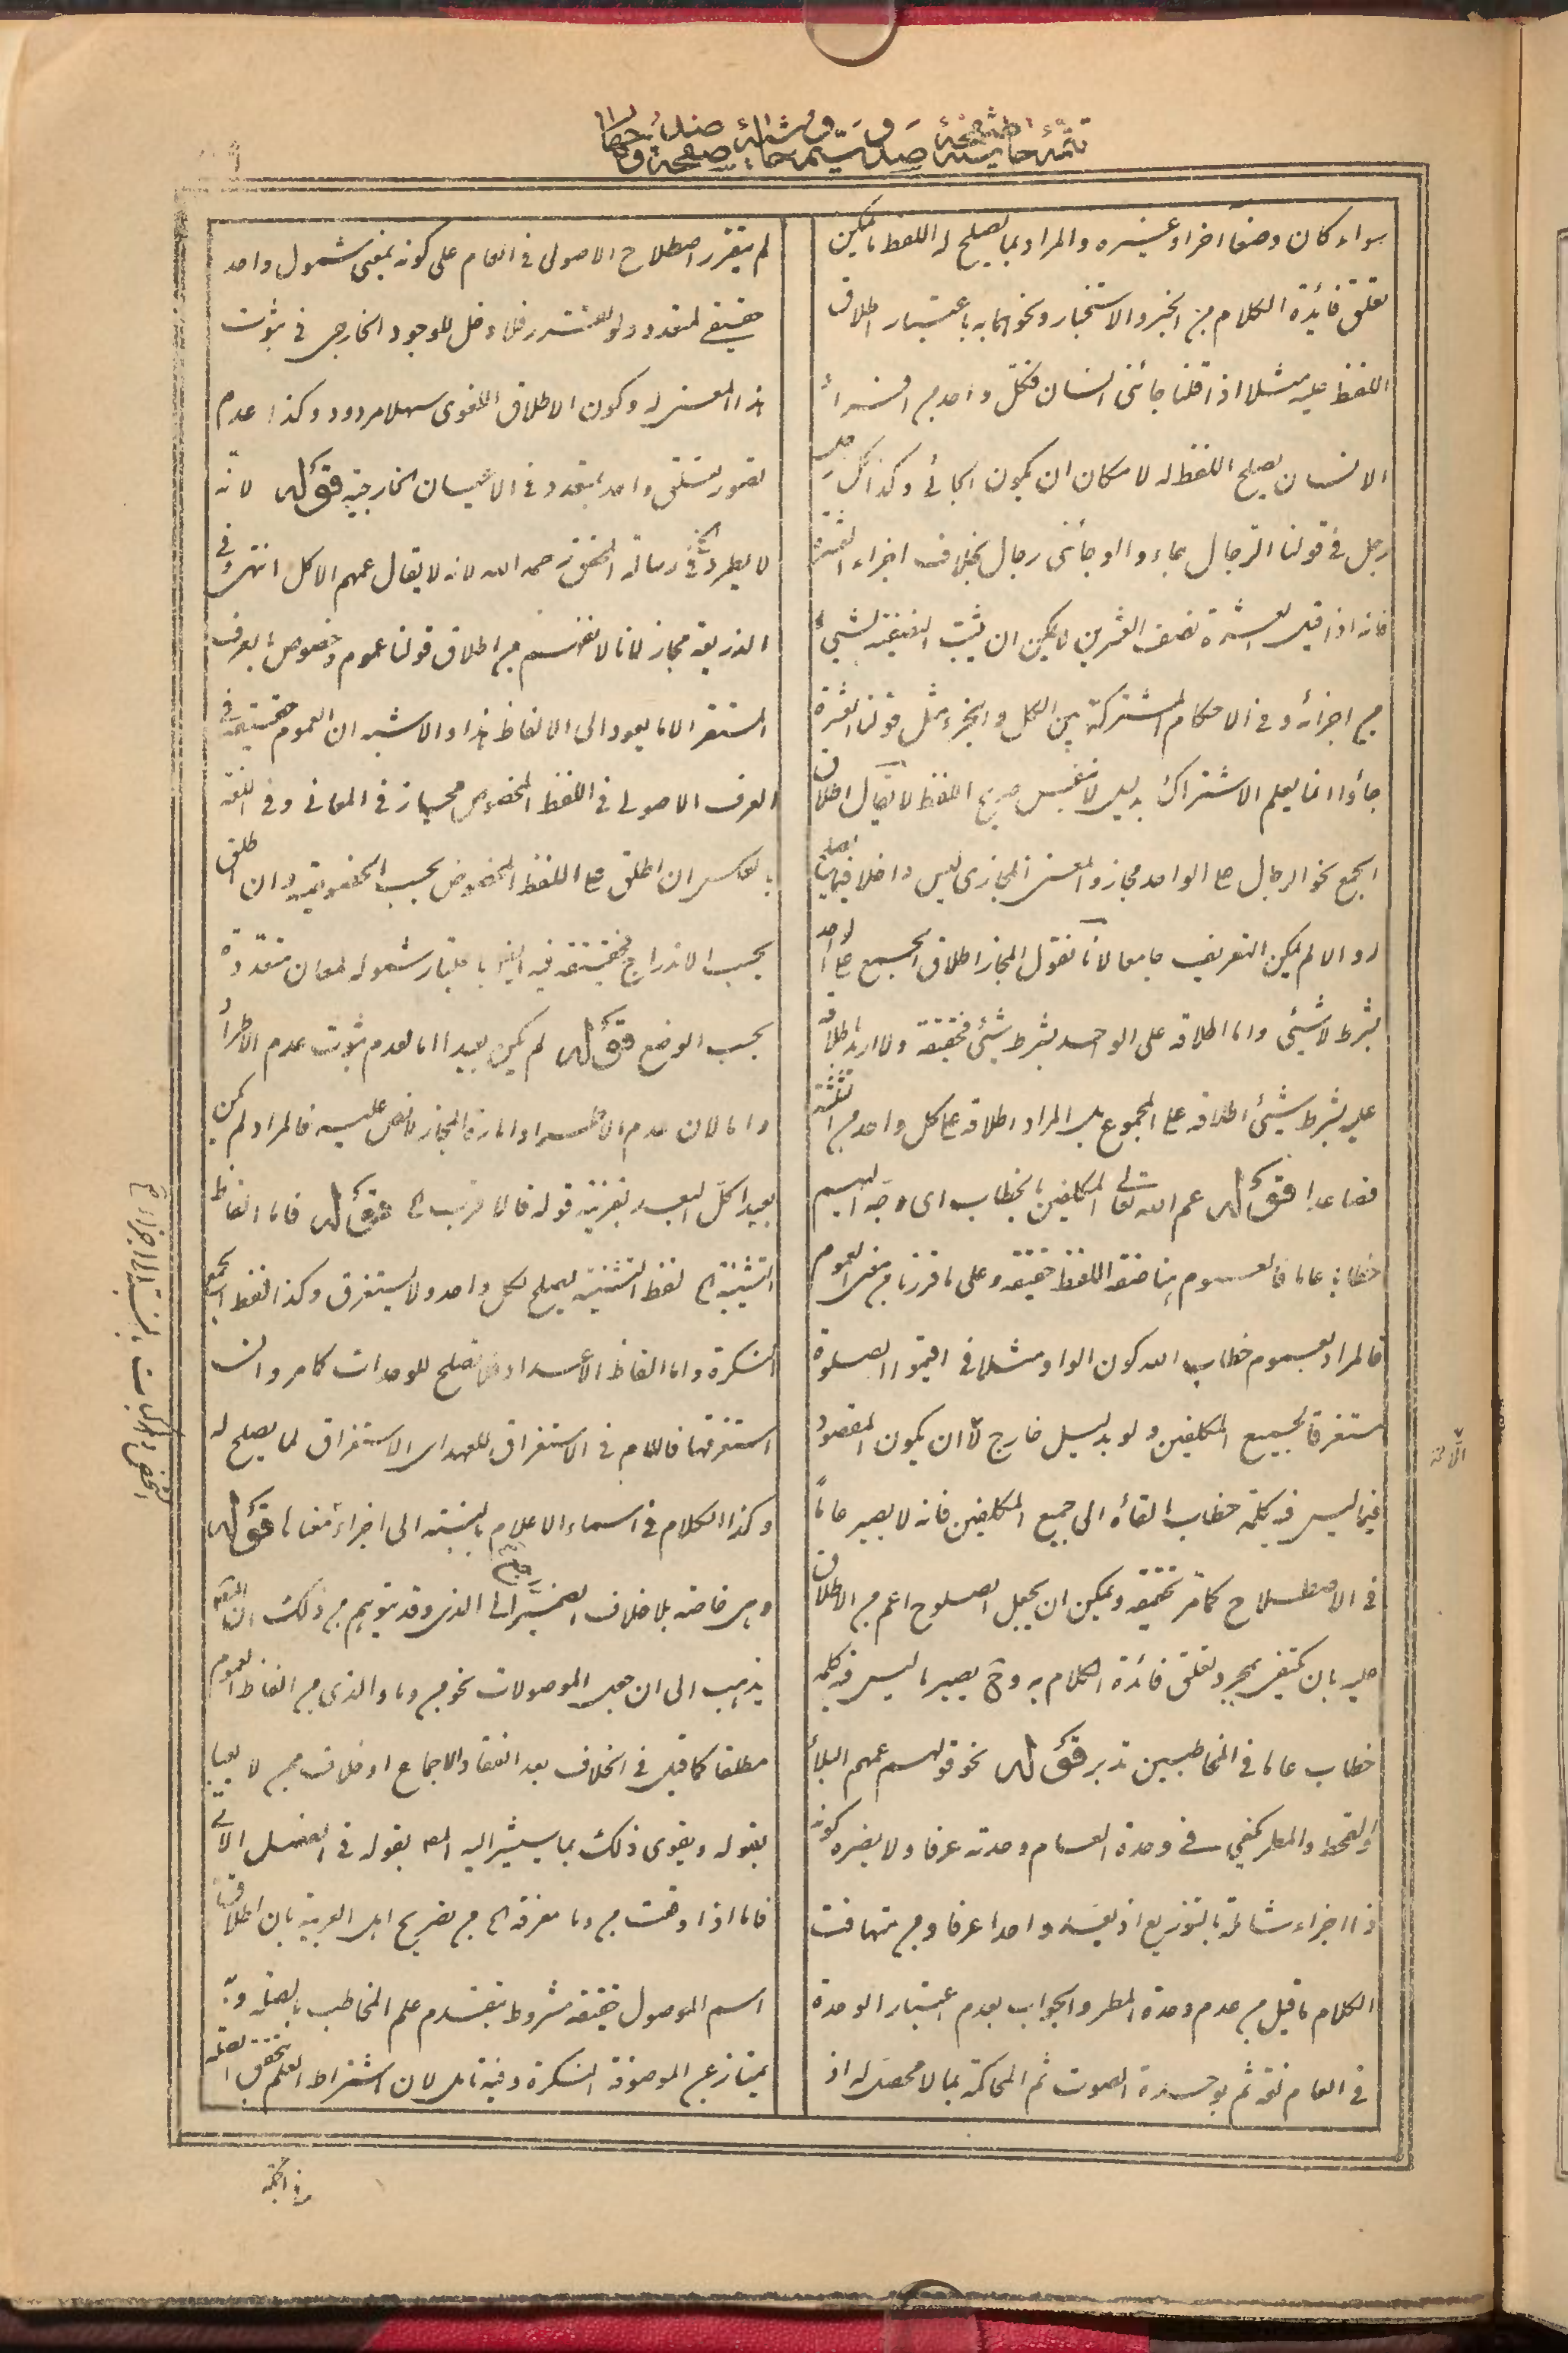 سواء كان وصفا اخراد غيره والمراد بما يصلح له اللفظ ما يمكن
تعلق فائدة الكلام من الخبر والاستخبار ونحوهما به باعتبار اطلاق
اللفظ عليه مثلا اذا قلنا جائنى انسان فكل واحد من افراد
الانسان يصلح اللفظ له لامكان ان يكون الجائى وكذا كل
رجل فى قولنا الرجال جاءوا او جائنى رجال بخلاف اجزاء العشرة
فانه اذا قيل العشرة نصف العشرين لا يمكن ان يثبت النصفية لشئ
من اجزائه وفى الاحكام المشتركة بين الكل والجزء مثل قولنا العشرة
جاؤا انما يعلم الاشتراك بدليل لا بنفس صريح اللفظ لا يقال اطلاق
الجمع نحو الرجال على الواحد مجاز والمعنى المجازى ليس داخلا فيما يصلح
له والا لم يكن التعريف جامعا لانا نقول المجاز اطلاق الجمع على الواحد
بشرط لا شئ واما اطلاقه على الواحد بشرط شئ فحقيقة ولا اريد باطلاقه
عليه بشرط شئ اطلاقه على المجموع بل المراد اطلاقه على كل واحد من الثلثة
فصاعدا قوله عم الله تعالى المكلفين بالخطاب اى وجه اليهم
خطابا عاما فالعموم هنا صفة اللفظ حقيقة وعلى ما قررنا من معنى العموم
فالمراد بعموم خطاب الله كون الواو مثلا فى اقيموا الصلوة
مستغرقا لجميع المكلفين ولو بدليل خارج لا ان يكون المقصود
فيما ليس فيه كلمة خطاب القائه الى جميع المكلفين فانه لا يصير عاما
فى الاصطلاح كما مر تحقيقه ويمكن ان يجعل الصلوح اعم من الاطلاق
عليه بان يكتفى بمجرد تعلق فائدة الكلام به وح يصير ما ليس فيه كلمة
خطاب عاما فى المخاطبين تدبر قوله نحو قولهم عمهم البلاء
والقحط والمطر يكفى فى وحدة العام وحدته عرفا ولا يضره كونه
ذا اجزاء شاملة بالتوزيع اذ يعد واحدا عرفا ومن تهافت
الكلام ما قيل من عدم وحدة المطر والجواب بعدم اعتبار الوحدة
فى العام لغة ثم بوحدة الصوت ثم المحاكمة بما لا محصل له اذ
لم يتقرر اصطلاح الاصولى فى العام على كونه بمعنى شمول واحد
حقيقى لمتعدد ولو تقرر فلا دخل للوجود الخارجى فى ثبوت
هذا المعنى له وكون الاطلاق اللغوى سهلا مردود وكذا عدم
تصور تعلق واحد بمتعدد فى الاعيان الخارجية قوله لانه
لا يطرد فى رسالة المحقق رحمه الله لانه لا يقال عمهم الاكل انتهى وفى
الذريعة مجاز لانا لا نفهم من اطلاق قولنا عموم وخصوص بالعرف
المستقر الا ما يعود الى الالفاظ هذا والاشبه ان العموم حقيقة فى
العرف الاصولى فى اللفظ المخصوص مجاز فى المعانى وفى اللغة
بالعكس ان اطلق على اللفظ المخصوص بحسب الخصوصية وان اطلق
بحسب الاندراج فحقيقة فيه ايضا باعتبار شموله لمعان متعددة
بحسب الوضع قوله لم يكن بعيدا اما لعدم ثبوت عدم الاطراد
واما لان عدم الاطراد امارة المجاز لا نص عليه فالمراد لم يكن
بعيدا كل البعد بقرينة قوله فالاقرب الخ قوله فاما الفاظ
التثنية الخ لفظ التثنية يصلح لكل واحد ولا يستغرق وكذا لفظ الجمع
النكرة واما الفاظ الاعداد فانها تصلح للوحدات كما مر وان
استغرقتها فاللام فى الاستغراق للعهد اى الاستغراق لما يصلح له
وكذا الكلام فى اسماء الاعلام بالنسبة الى اجزاء معناها قوله
وهى خاصة بلا خلاف الضمير الى الذى وقد يتوهم من ذلك ان المصنف
يذهب الى ان جميع الموصولات نحو من وما والذى من الفاظ العموم
مطلقا كما قيل فى الخلاف بعد انعقاد الاجماع او خلاف من لا يعبأ
بقوله ويقوى ذلك بما سيشير اليه المصنف بقوله فى الفصل الاتى
فاما اذا وقعت من وما معرفة الخ من تصريح اهل العربية بان اطلاق
اسم الموصول حقيقة مشروط بتقدم علم المخاطب بالصلة وبه
يمتاز عن الموصوفة النكرة وفيه تامل لان اشتراط العلم بتحقق الصلة